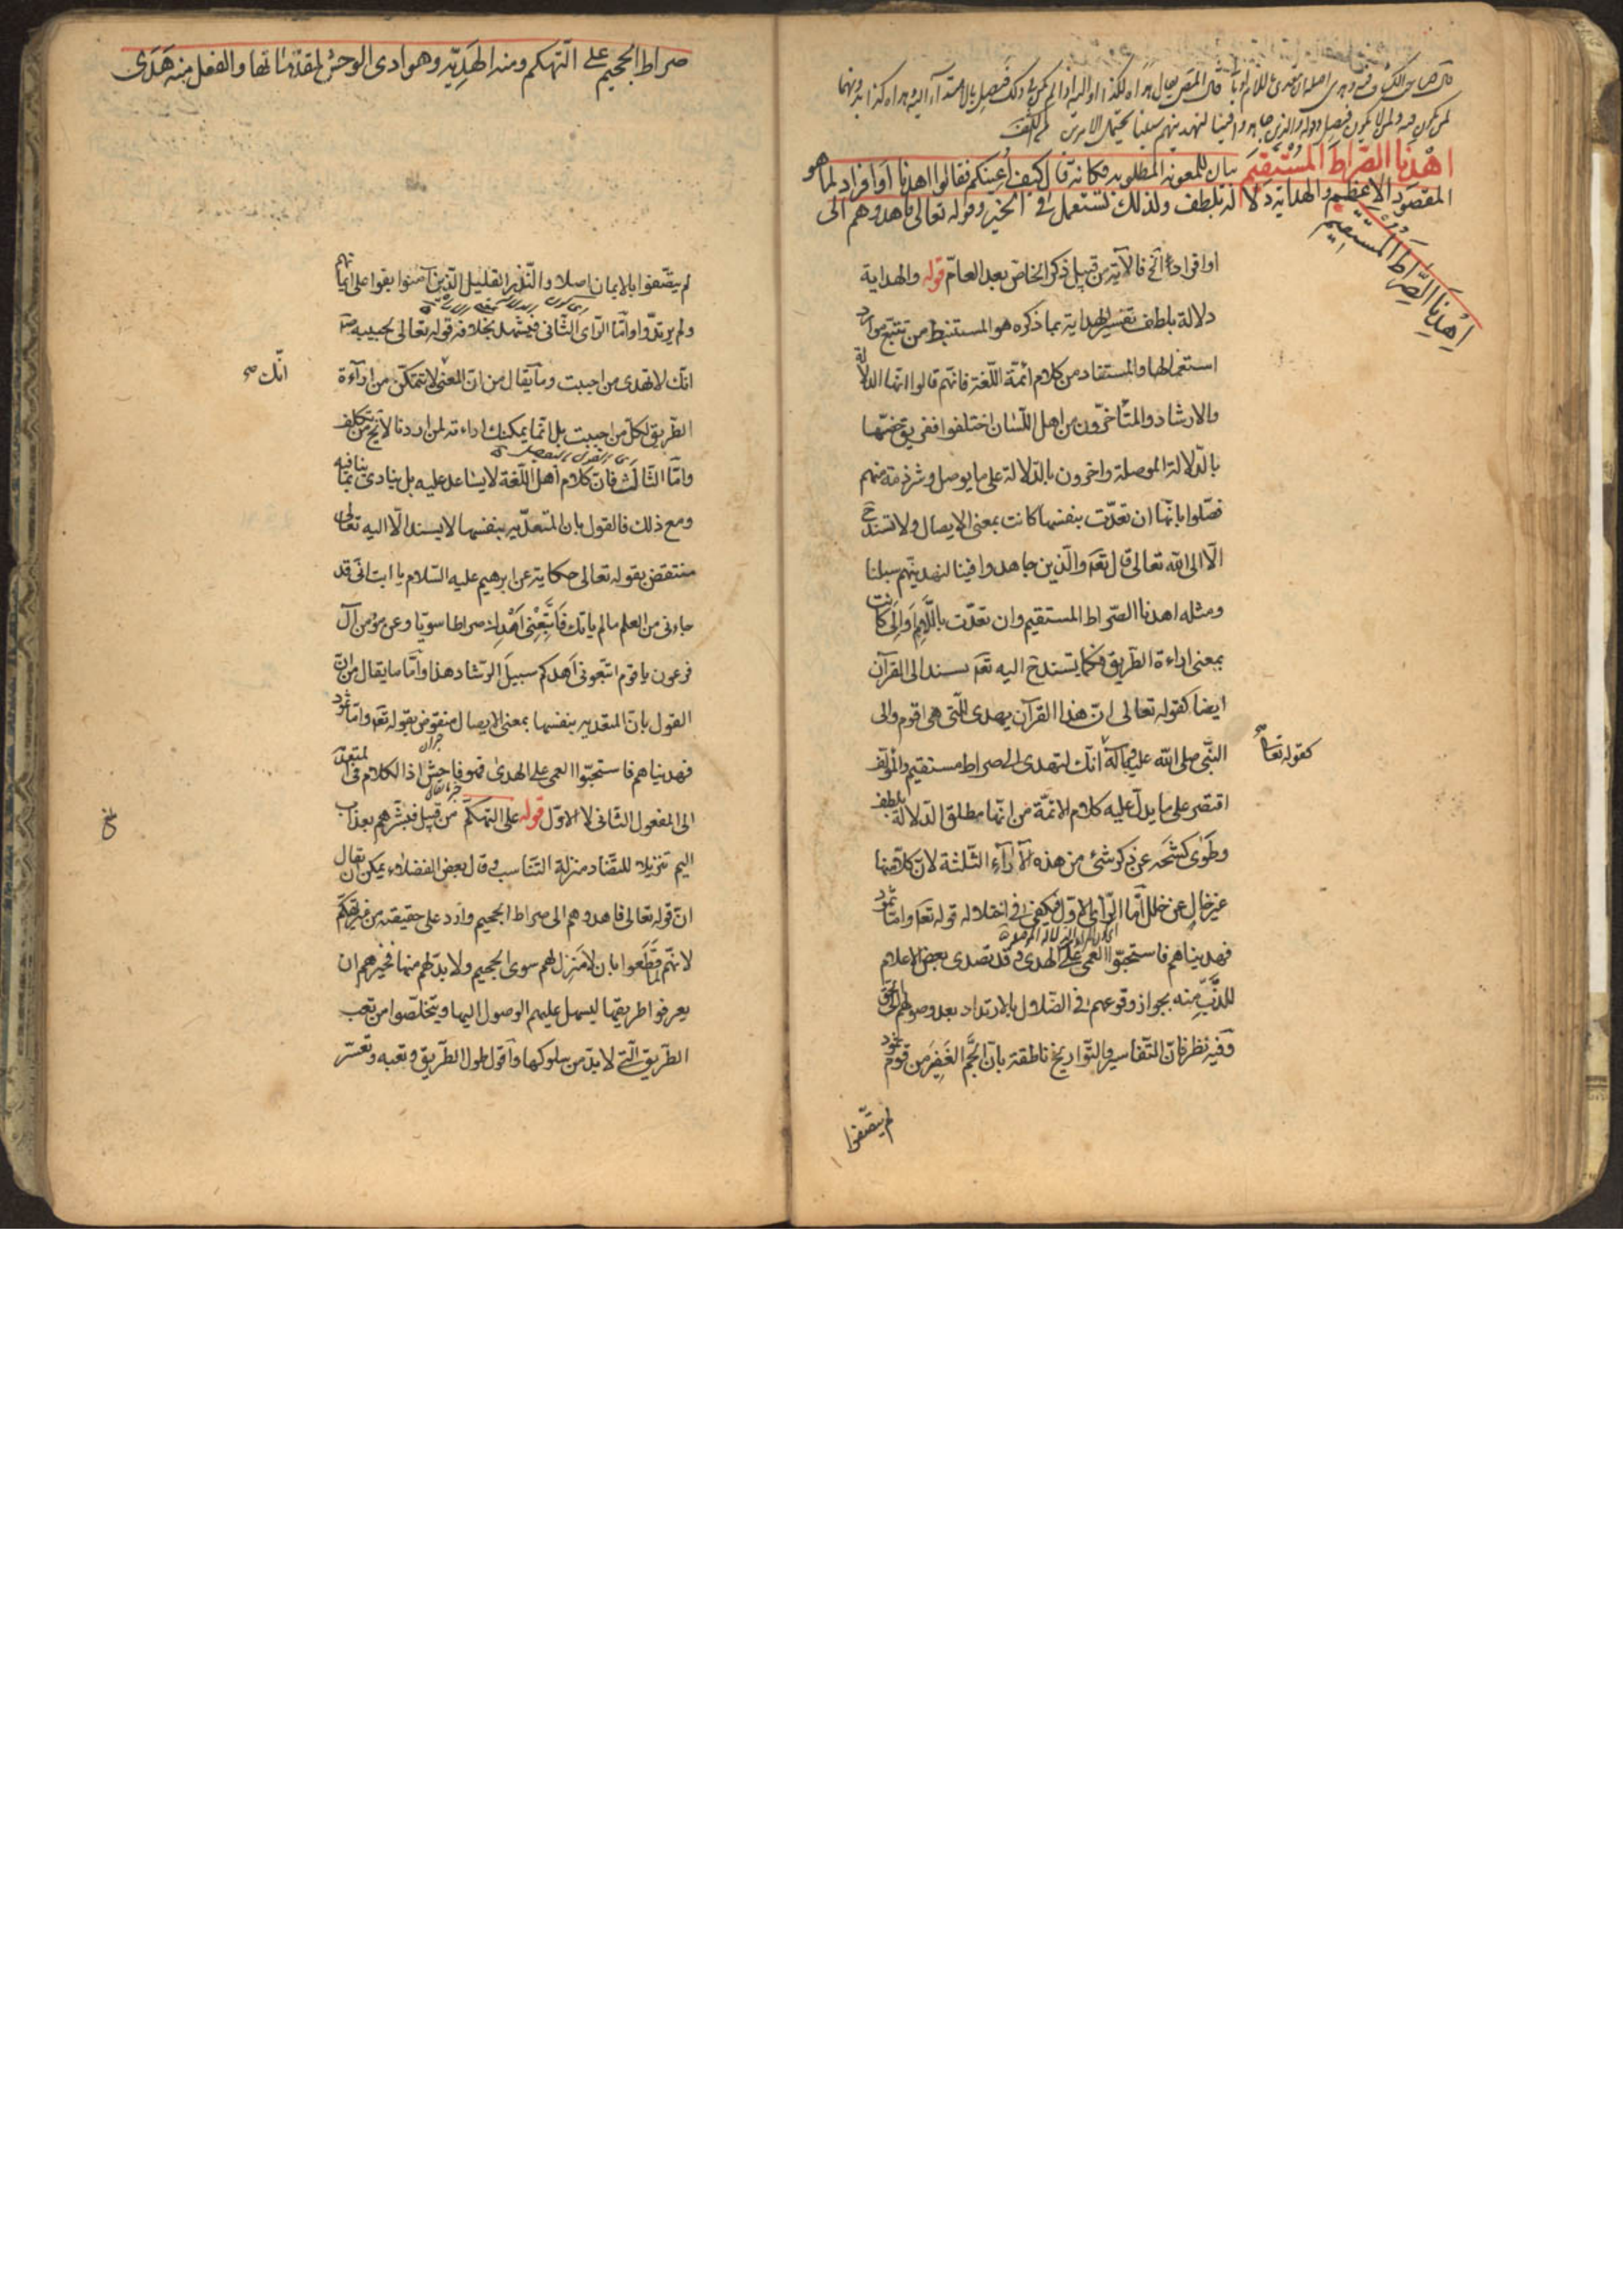 اهْدِنَا الصِّرَاطَ الْمُسْتَقِيمَ بيان للمعونة المطلوبة فكانه قال كيف اعينكم فقالوا اهدنا او افراد لما هو
المقصود الاعظم والهداية دلالة بلطف ولذلك تستعمل في الخير وقوله تعالى فاهدوهم الى
اِهْدِنَا الصِّرَاطَ الْمُسْتَقِيم
او افراد الخ فالآية من قبيل ذكر الخاص بعد العامّ قوله والهداية
دلالة بلطف تفسير الهداية بما ذكره هو المستنبط من تتبّع موارد
استعمالها والمستفاد من كلام ائمّة اللّغة فانّهم قالوا انّها الدلالة
والارشاد والمتأخّرون من اهل اللّسان اختلفوا ففريق خصّها
بالدّلالة الموصلة واخرون بالدّلالة على ما يوصل وشرذمة منهم
فصّلوا بانّها ان تعدّت بنفسها كانت بمعنى الايصال ولا تسند ح
الّا الى الله تعالى قال تعه والّذين جاهدوا فينا لنهدينّهم سبلنا
ومثله اهدنا الصّراط المستقيم وان تعدّت باللّام او الى كانت
بمعنى اراءة الطّريق فكما تسند ح اليه تعه تسند الى القرآن
ايضا كقوله تعالى انّ هذا القرآن يهدى للّتى هى اقوم والى
النّبى صلى الله عليه وآله انّك لتهدى الى صراط مستقيم والمؤلّف
كقوله تعا
اقتصر على ما يدلّ عليه كلام الائمّة من انّها مطلق الدّلالة بلطف
وطوى كشحه عن ذكر شئ من هذه الآراء الثّلثة لانّ كلا منها
غير خالٍ عن خلل امّا الرّأى الاوّل فيكفى فى اختلاله قوله تعه وامّا ثمود
فهديناهم فاستحبّوا العمى على الهدى وقد تصدى بعض الاعلام
للذّبّ عنه بجواز وقوعهم فى الضّلال بالارتداد بعد وصولهم الى الحق
وفيه نظر فانّ التّفاسير والتّواريخ ناطقة بانّ الجَمّ الغَفِيرَ من قوم ثمود
لم يتّصفوا
صراط الجحيم على التّهكم ومنه الهَدِيّه وهوادى الوحش لمقدّماتها والفعل منه هَدَى
لم يتّصفوا بالايمان اصلا والنّذر القليل الّذين آمنوا بقوا على ايمانهم
ولم يرتدّوا وامّا الرّاى الثّانى فيشهد بخلافه قوله تعالى لحبيبه ص
انّك لا تهدى من احببت وما يقال من انّ المعنى لا تتمكّن من اراءة
انّك صح
الطّريق لكلّ من احببت بل انّما يمكنك اراءته لمن اردنا لا يخ من تكلف
وامّا الثّالث فانّ كلام اهل اللّغة لا يساعد عليه بل ينادى بما ينافيه
ومع ذلك فالقول بانّ المتعدّيه بنفسها لا يسند الّا اليه تعالى
منتقض بقوله تعالى حكاية عن ابرهيم عليه السّلام يا ابت انّى قد
جاءنى من العلم ما لم ياتك فَاتّبِعْنِى اَهْدِك صراطا سويّا وعن مؤمن آل
فرعون يا قوم اتّبعونى اهدكم سبيل الرّشاد هذا وامّا ما يقال من انّ
القول بانّ المتعديه بنفسها بمعنى الايصال منقوض بقوله تعه وامّا ثمود
فهديناهم فاستحبّوا العمى على الهدى فهو فاحش اذ الكلام فى المتعدّيه
الى المفعول الثّانى لا الاوّل قوله على التهكّم من قبيل فبشّرهم بعذاب
اليم تنزيلا للتّضاد منزلة التّناسب وقال بعض الفضلاء يمكن ان يقال
انّ قوله تعالى فاهدوهم الى صراط الجحيم وارد على حقيقته من غير تهكّم
لانّهم لمّا قطعوا بان لا منزل لهم سوى الجحيم ولا بدّ لهم منها فخيرهم ان
يعرفوا طريقها ليسهل عليهم الوصول اليها ويتخلّصوا من تعب
الطّريق الّتى لا بدّ من سلوكها واقول طول الطّريق وتعبه وتعسّر